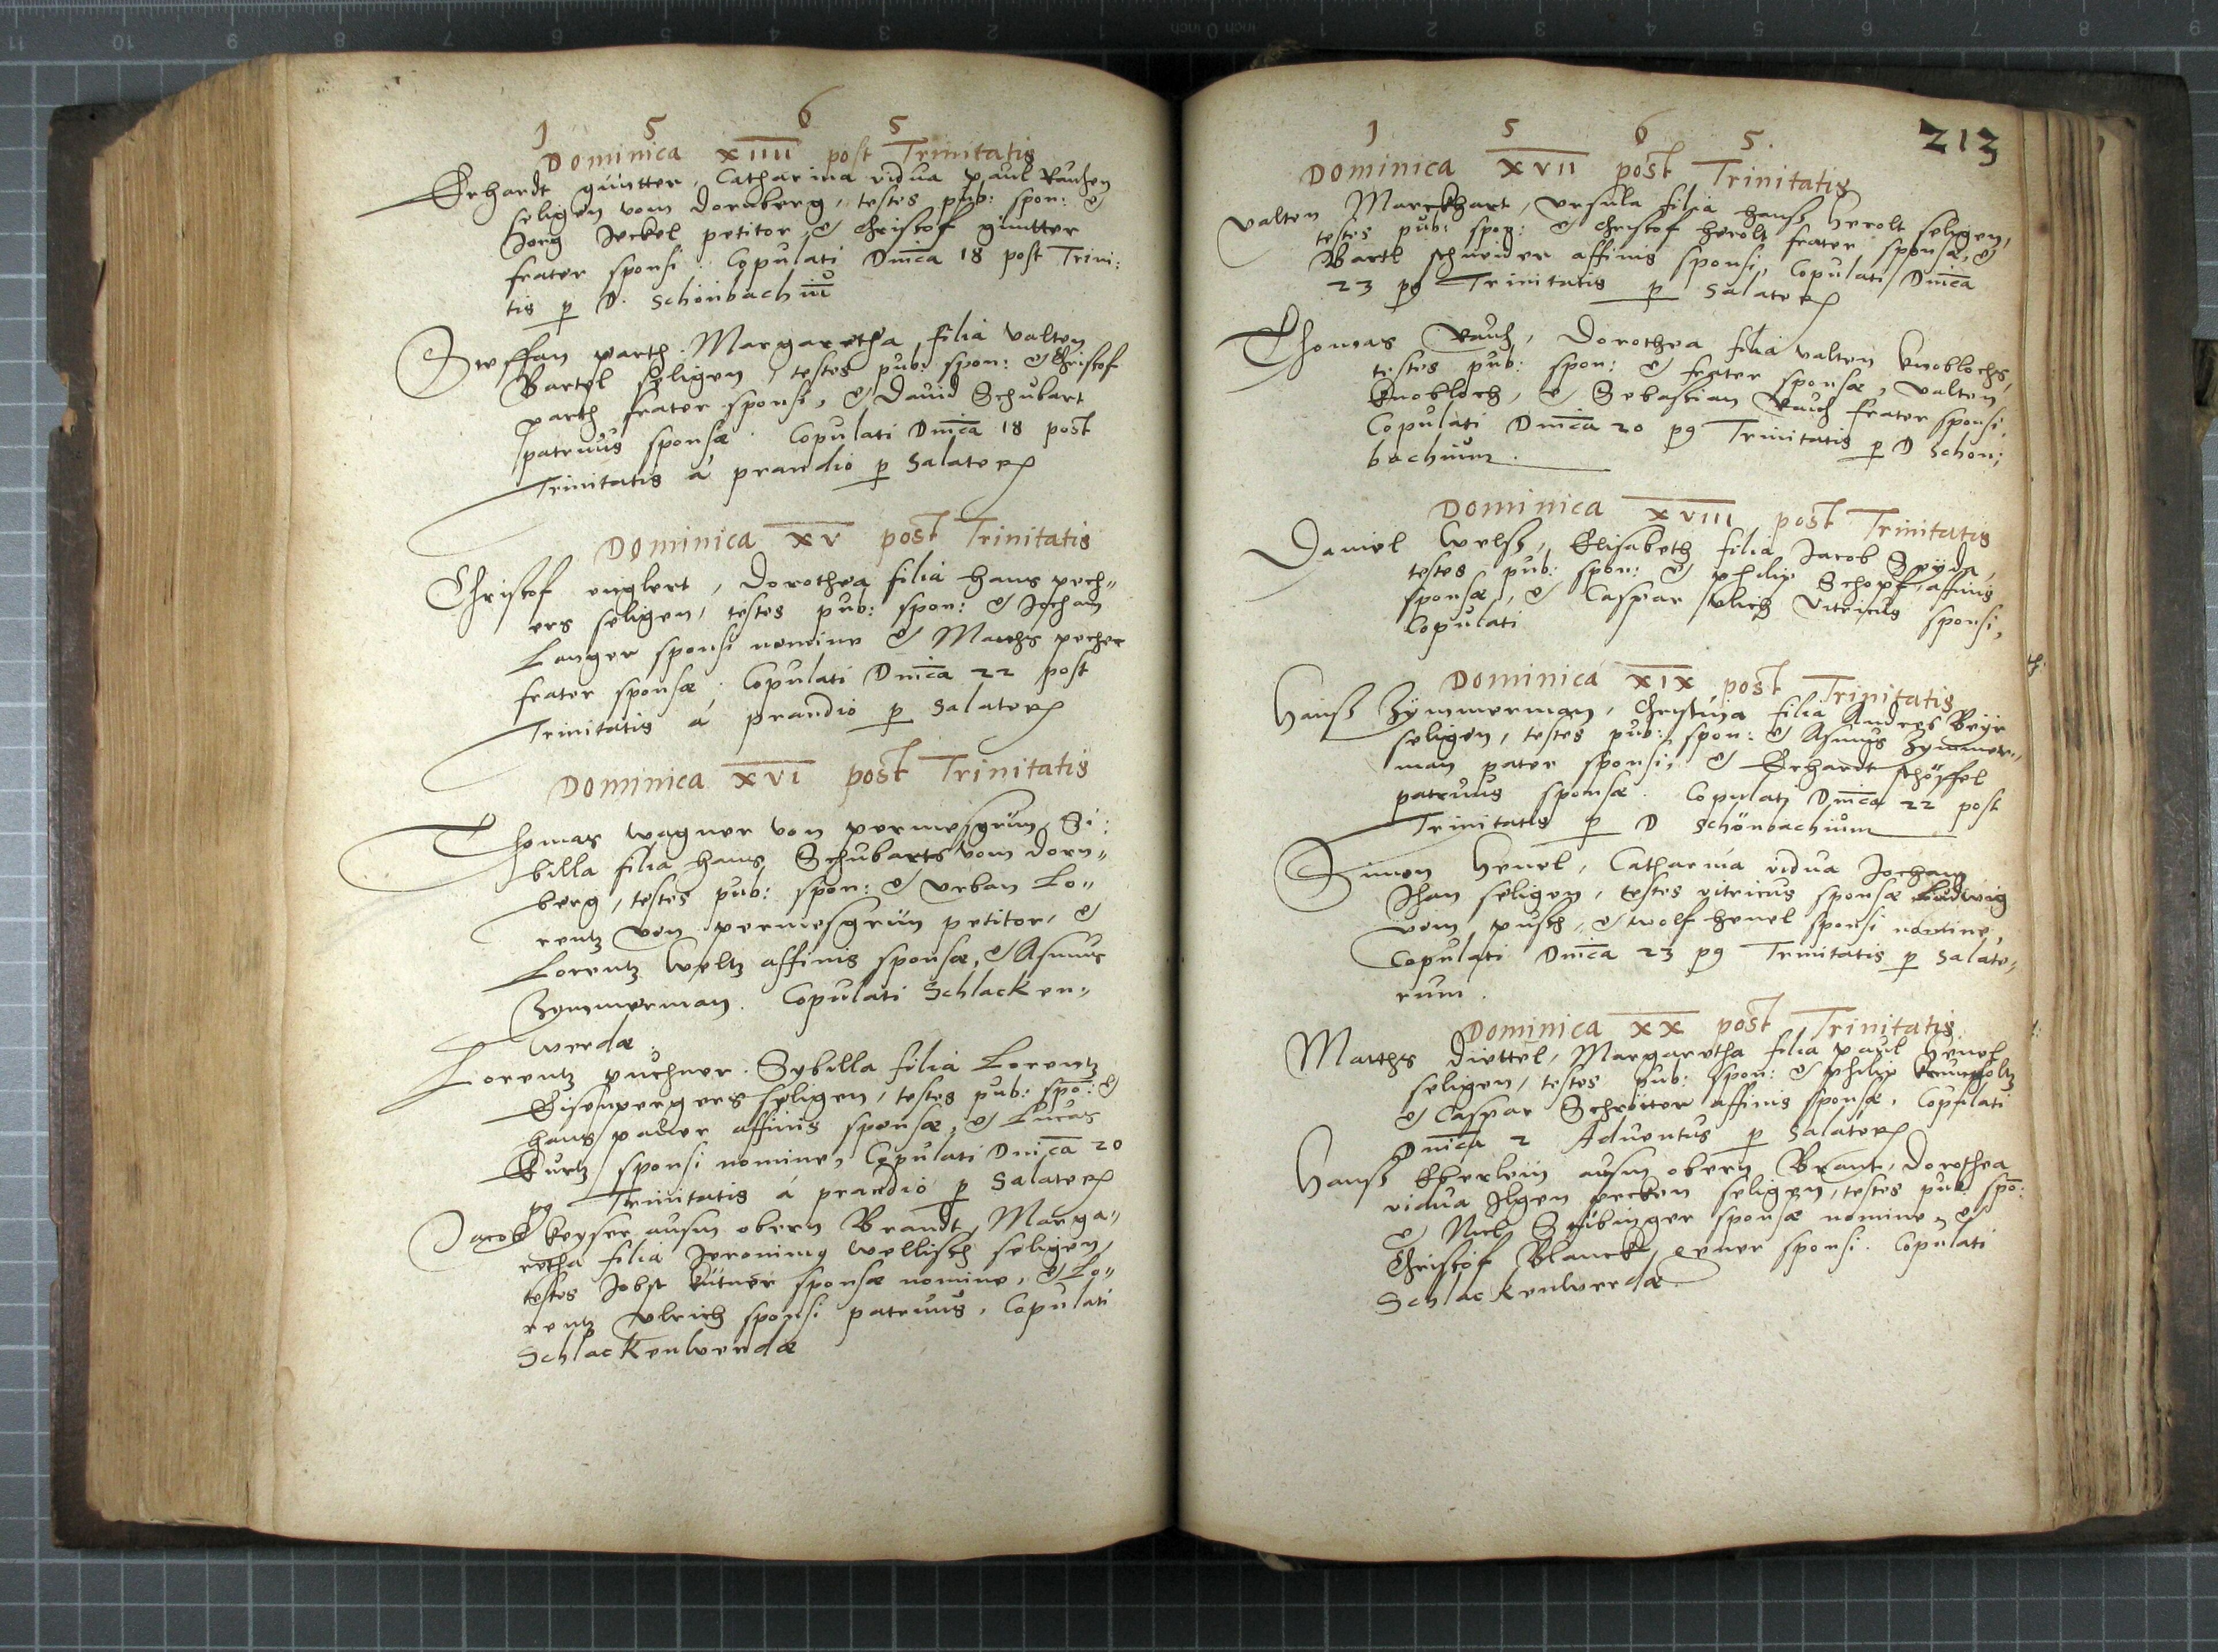 1 5 6 5
Dominica XIIII post Trinitatis
Erhardt güntter, Catharina vidua Paul Rauhen
seligen vom dornberg, testes pub: spon: &
Jorg Jeckel petitor, & Christof güntter
frater sponsi. Copulati Dnica 18 post Trini:
tis p D. Schönbachiū
Steffan parth. Margaretha filia valten
Bartel seligen, testes pub: spon: & Christof
parth frater sponsi, & Dauid Schubart
patruus sponsæ. Copulati Dnica 18 post
Trinitatis á prandio p Salater
Dominica XV post Trinitatis
Christof englert, Dorothea filia hans pech-
ers seligen, testes pub: spon: & Jocham
Langer sponsi nomine & Matths pecher
frater sponsæ. Copulati Dnica 22 post
Trinitatis á prandio p Salater
Dominica XVI post Trinitatis
Thomas Wagner von permesgrün, Si:
billa filia hans Schubarts vom dorn-
berg, testes pub: spon: & Vrban Lo-
rentz von permesgrün petitor, &
Lorentz Weltz affinis sponsæ, & Asmus
Zymmerman. Copulati Schlacken-
werdæ.
Lorentz puchner. Sybilla filia Lorentz
Eisenpergers seligen, testes pub: spo: &
hans pader affinis sponsæ, & Lucas
Kurtz sponsi nomine, Copulati Dnica 20
pg Trinitatis á prandio p Salater
Jacob keyser ausm obern Brandt, Marga-
retha filia Jeronimg Wellisch seligen,
testes Jobst kütner sponsæ nomine, & Lo-
rentz Vlrich sponsi patruus, Copulati
Schlackenwerdæ
213
1 5 6 5.
Dominica XVII post Trinitatis
Valten Marckhart, Vrsula filia hanß herolt seligen,
testes pub: spon: & Christof herolt frater sponsæ, &
Bartl schneider affinis sponsi, Copulati Dnica
23 pg Trinitatis p Salater
Thomas Rauh, Dorothea filia valten knoblochs,
testes pub: spon: & frater sponsæ, Valten
knobloch, & Sebastian Rauh frater sponsi,
Copulati Dnica 20 pg Trinitatis p D Schön:
bachium.
Dominica XVIII post Trinitatis
Daniel Welß, Elisabeth filia Jacob Seyda,
testes pub: spon: & philip Schopf affinis
sponsæ, & Caspar Vlrich vitricus sponsi,
Copulati
Dominica XIX post Trinitatis
Hanß Zymmerman, Christina filia Andres Beyr
seligen, testes pub: spon: & Asmus Zymmer-
man pater sponsi, & Erhardt schöffel
patruus sponsæ. Copulati Dnica 22 post
Trinitatis p D Schönbachium
Simon Henel, Catharina vidua Jocham
Jhan seligen, testes vitricus sponsæ Ludwig
vom pusch, & Wolf henel sponsi nomine,
Copulati Dnica 23 pg Trinitatis p Salate-
rum.
Dominica XX post Trinitatis
Matths Diettel, Margaretha filia paul Henel
seligen, testes pub: spon: & philip krumpholtz
& Caspar Schrötter affinis sponsæ, Copulati
Dnica 2 Aduentus p Salater
Hanß Eberlein ausm obern Brant, Dorothea
vidua Ilgen pecken seligen, testes pub spo:
& Nicl sponsæ nomine, &
Christof Blanck, sponsi. Copulati
Schlackenwerdæ.